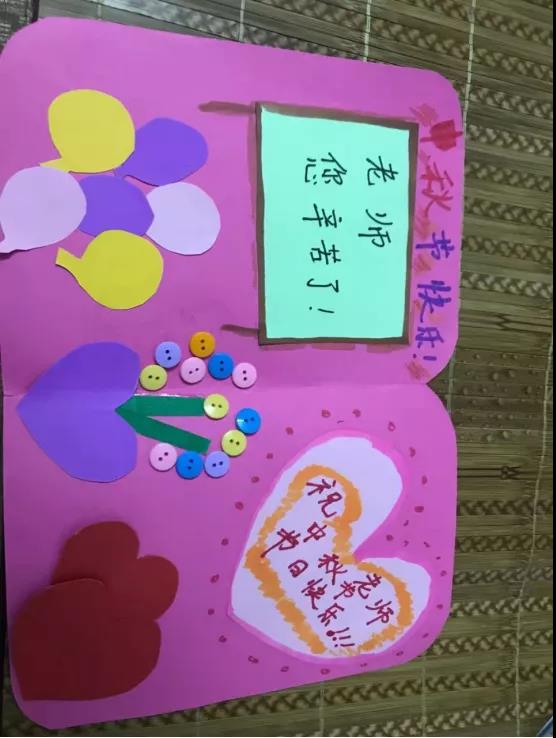 中秋节快乐!
老师
您辛苦了!
祝老师
中秋节
节日快乐!!!